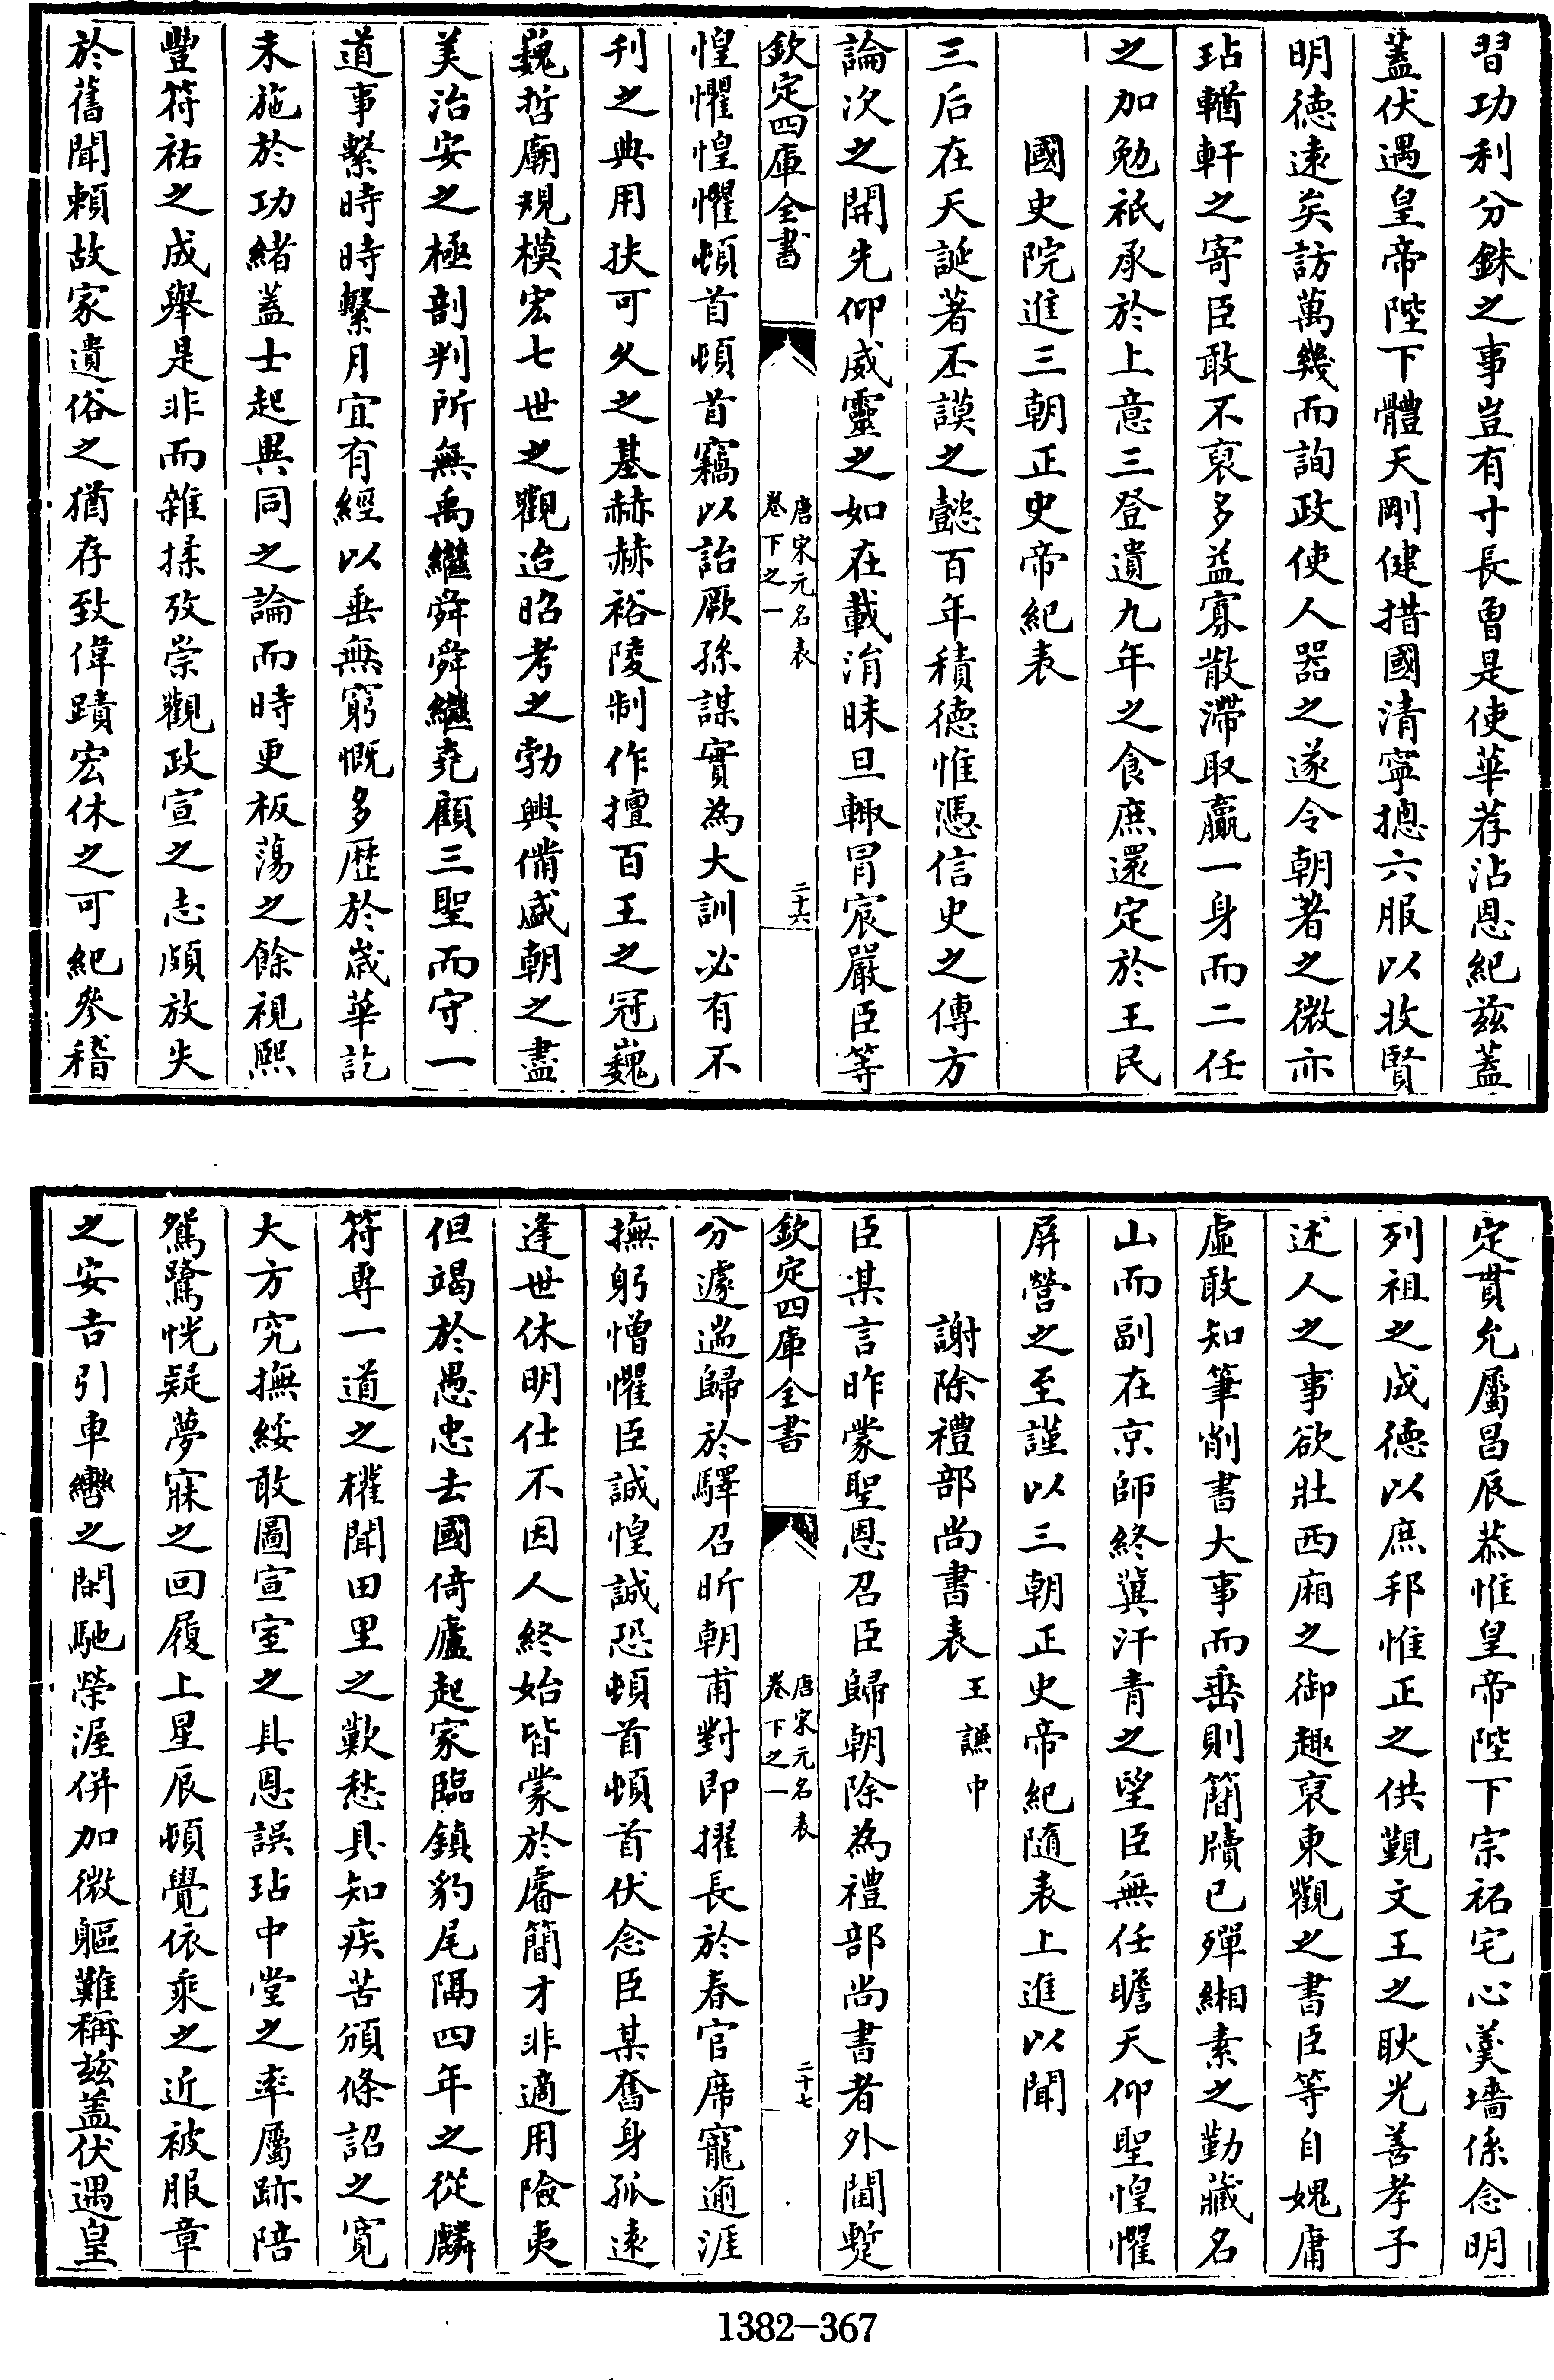 習功利分銖之事豈有寸長曾是使華荐沾恩紀兹蓋
蓋伏遇皇帝陛下體天剛健措國清寧摠六服以收賢
明徳逺矣訪萬幾而詢政使人器之遂令朝著之微亦
玷輶軒之寄臣敢不裒多益寡散滯取贏一身而二任
之加勉祇承於上意三登遺九年之食庶還定於王民
國史院進三朝正史帝紀表
三后在天誕著丕謨之懿百年積德惟憑信史之傳方
論次之開先仰威靈之如在載涓昧旦輙冐宸嚴臣等
欽定四庫全書
唐宋元名表
卷下之一
二十六
惶懼惶懼頓首頓首竊以詒厥孫謀實為大訓必有不
刋之典用扶可久之基赫赫裕陵制作擅百王之冠巍
巍哲廟規模宏七世之觀迨昭考之勃興備盛朝之盡
美治安之極剖判所無禹繼舜舜繼堯顧三聖而守一
道事繫時時繫月宜有經以垂無窮慨多歴於嵗華訖
未施於功緒蓋士起異同之論而時更板蕩之餘視熙
豐符祐之成舉是非而雜揉攷崇觀政宣之志頗放失
於舊聞頼故家遺俗之猶存致偉蹟宏休之可紀參稽
定貫允屬昌辰恭惟皇帝陛下宗祏宅心羮墻係念明
列祖之成徳以庶邦惟正之供覲文王之耿光善孝子
述人之事欲壯西廂之御趣裒東觀之書臣等自媿庸
虛敢知筆削書大事而垂則簡牘已殫緗素之勤藏名
山而副在京師終冀汗青之望臣無任瞻天仰聖惶懼
屏營之至謹以三朝正史帝紀隨表上進以聞
謝除禮部尚書表 王謙中
臣某言昨蒙聖恩召臣歸朝除為禮部尚書者外閫蹔
欽定四庫全書
唐宋元名表
卷下之一
二十七
分遽遄歸於驛召昕朝甫對即擢長於春官席寵逾涯
撫躬憎懼臣誠惶誠恐頓首頓首伏念臣某奮身孤逺
逢世休明仕不因人終始皆蒙於睿簡才非適用險夷
但竭於愚忠去國倚廬起家臨鎮豹尾隅四年之從麟
符專一道之權聞田里之歎愁具知疾苦頒條詔之寛
大方究撫綏敢圖宣室之具恩誤玷中堂之率屬跡陪
鴛鷺恍疑夢寐之回履上星辰頓覺依乘之近被服章
之安吉引車轡之閑馳榮渥併加微軀難稱兹盖伏遇皇
1382-367